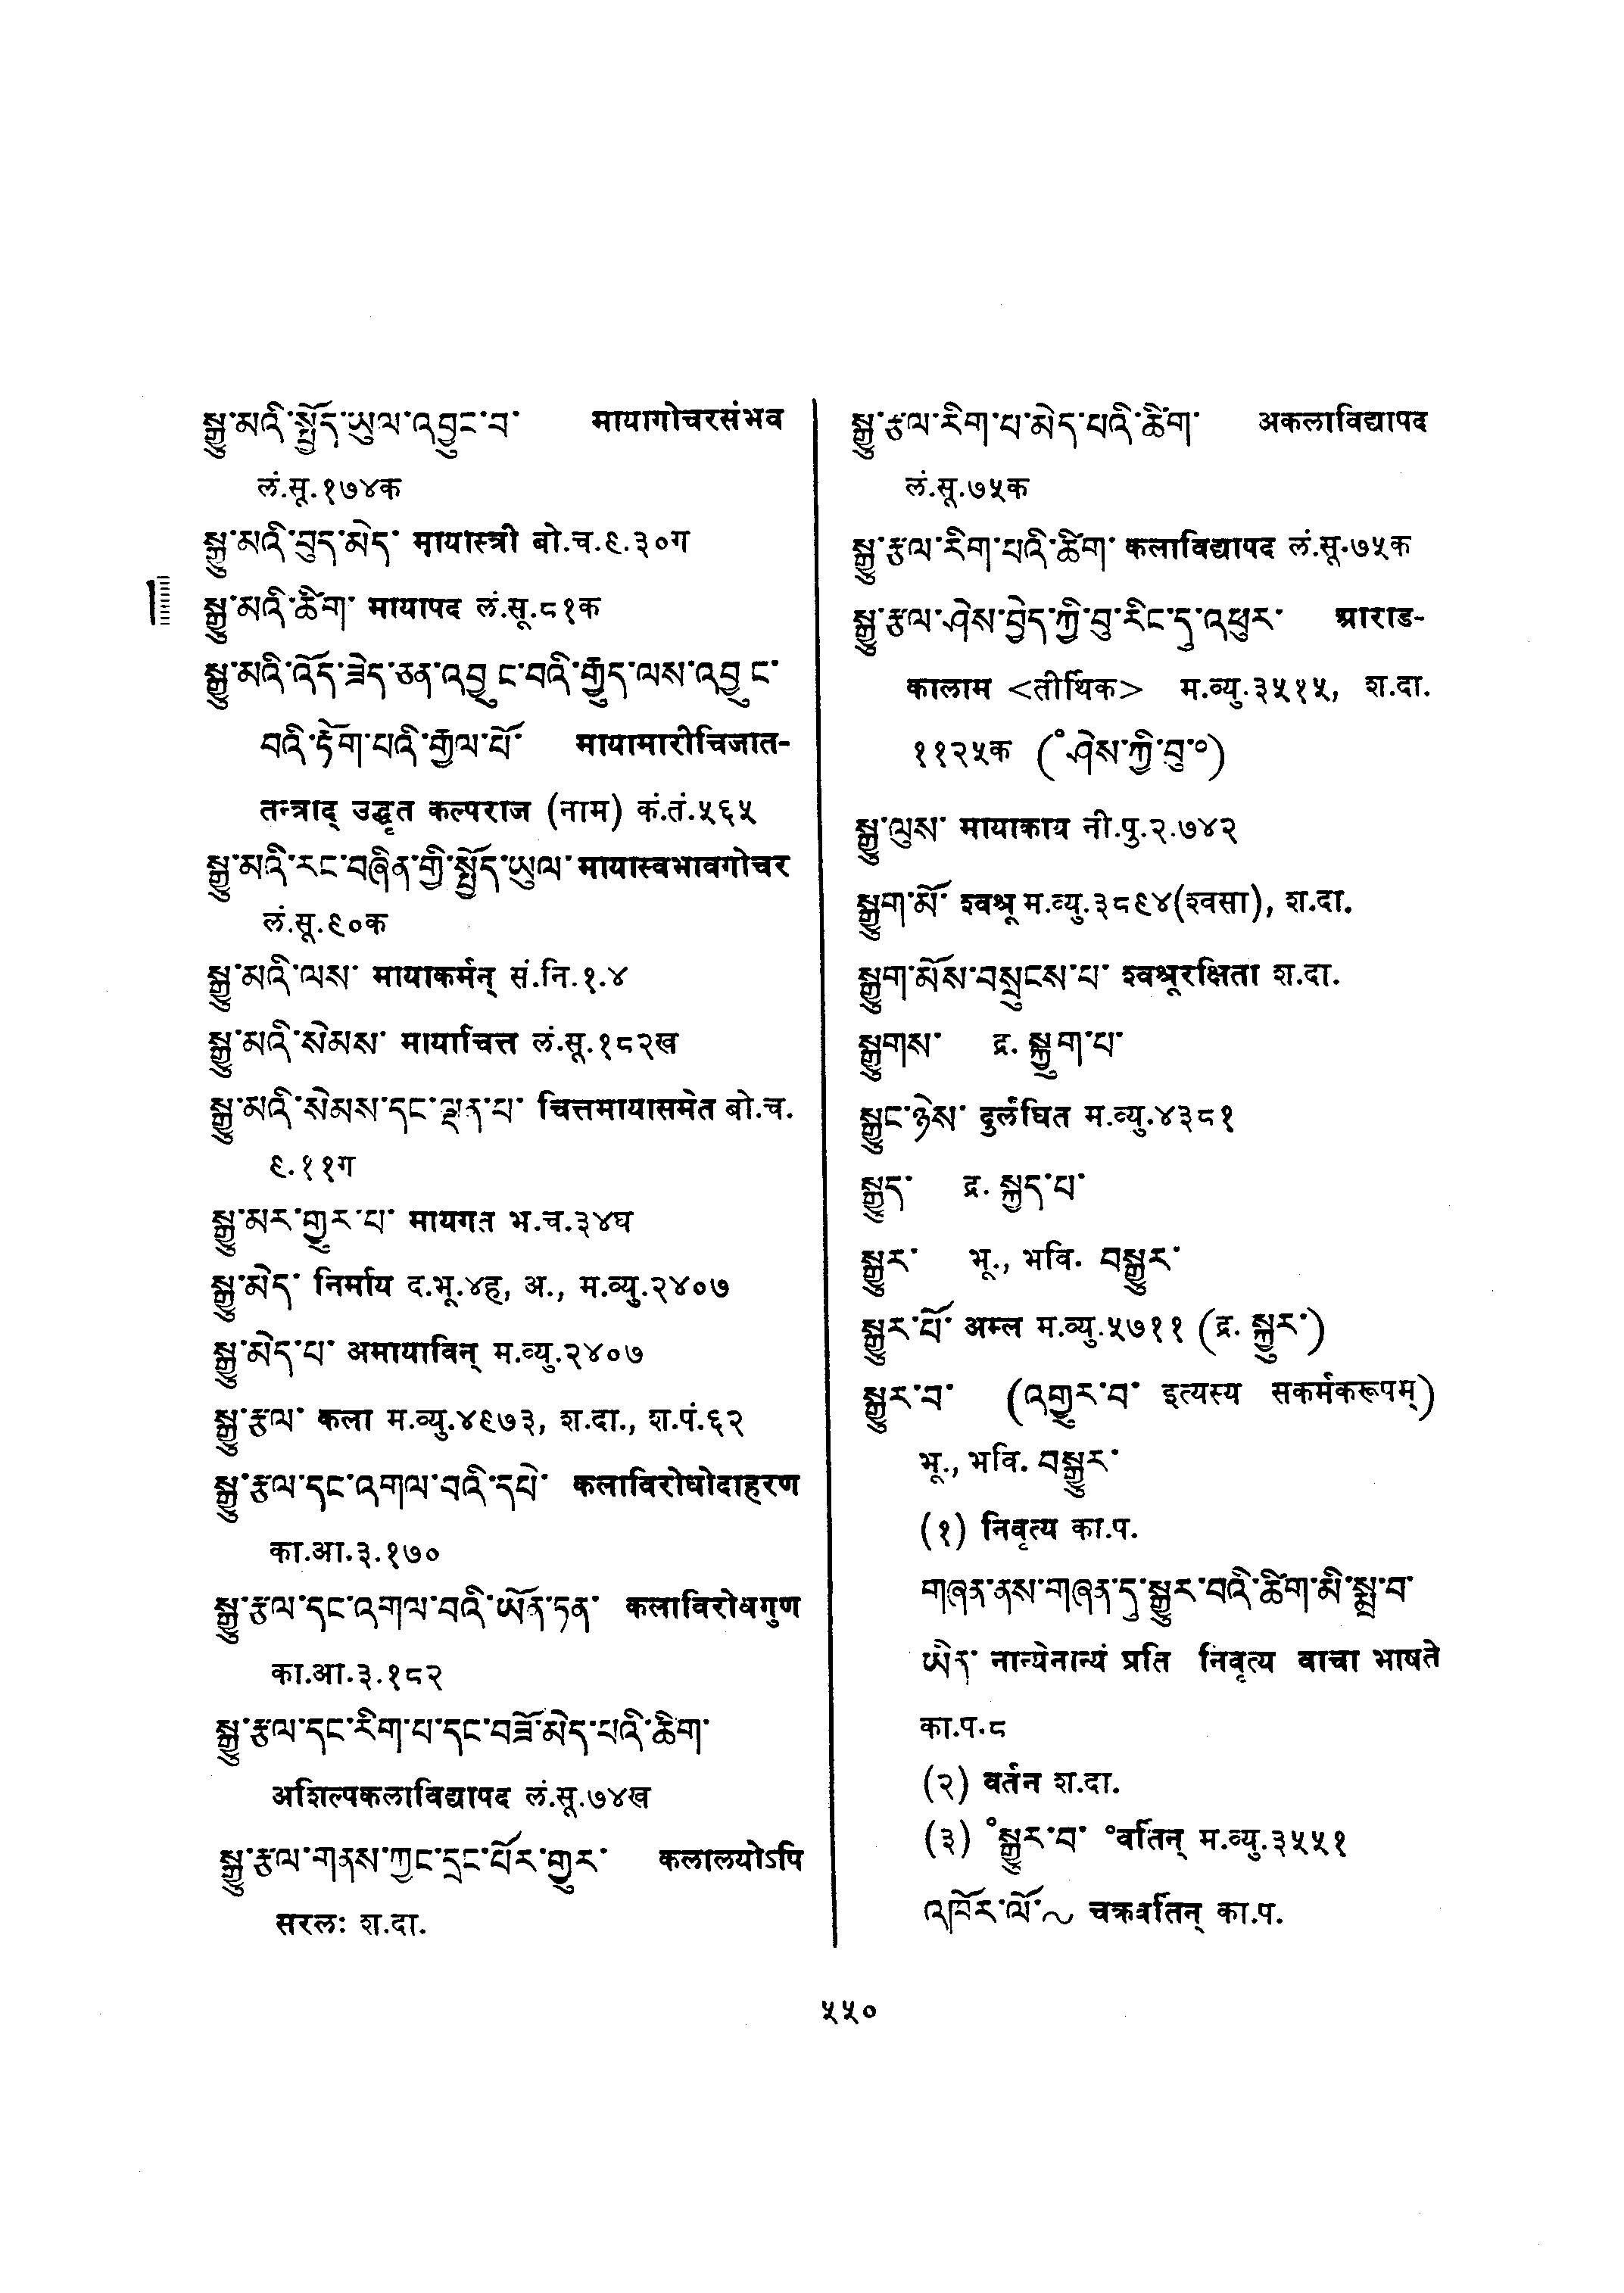 སྒྱུ་མའི་སྤྱོད་ཡུལ་འབྱུང་བ་ मायागोचरसंभव
लं.सू.१७४क
སྒྱུ་མའི་བུད་མེད་ मायास्त्री बो.च.९.३०ग
སྒྱུ་མའི་ཚིག་ मायापद लं.सू.८१क
སྒྱུ་མའི་འོད་ཟེད་ཅན་འབྱུང་བའི་རྒྱུད་ལས་འབྱུང་
བའི་རྟོག་པའི་རྒྱལ་པོ་ मायामारीचिजात-
तन्त्राद् उद्धृत कल्पराज (नाम) कं.तं.५६५
སྒྱུ་མའི་རང་བཞིན་གྱི་སྤྱོད་ཡུལ་ मायास्वभावगोचर
लं.सू.९०क
སྒྱུ་མའི་ལས་ मायाकर्मन् सं.नि.१.४
སྒྱུ་མའི་སེམས་ मायाचित्त लं.सू.१८२ख
སྒྱུ་མའི་སེམས་དང་ལྡན་པ་ चित्तमायासमेत बो.च.
९.११ग
སྒྱུ་མར་གྱུར་པ་ मायगत भ.च.३४घ
སྒྱུ་མེད་ निर्माय द.भू.४ह, अ., म.व्यु.२४०७
སྒྱུ་མེད་པ་ अमायाविन् म.व्यु.२४०७
སྒྱུ་རྩལ་ कला म.व्यु.४९७३, श.दा., श.पं.६२
སྒྱུ་རྩལ་དང་འགལ་བའི་དཔེ་ कलाविरोधोदाहरण
का.आ.३.१७०
སྒྱུ་རྩལ་དང་འགལ་བའི་ཡོན་ཏན་ कलाविरोधगुण
का.आ.३.१८२
སྒྱུ་རྩལ་དང་རིག་པ་དང་བཟོ་མེད་པའི་ཚིག་
अशिल्पकलाविद्यापद लं.सू.७४ख
སྒྱུ་རྩལ་གནས་ཀྱང་དྲང་པོར་གྱུར་ कलालयोऽपि
सरलः श.दा.
སྒྱུ་རྩལ་རིག་པ་མེད་པའི་ཚིག་ अकलाविद्यापद
लं.सू.७५क
སྒྱུ་རྩལ་རིག་པའི་ཚིག་ कलाविद्यापद लं.सू.७५क
སྒྱུ་རྩལ་ཤེས་བྱེད་ཀྱི་བུ་རིང་དུ་འཕུར་ आराड-
कालाम <तीर्थिक> म.व्यु.३५१५, श.दा.
११२५क (°ཤེས་ཀྱི་བུ་°)
སྒྱུ་ལུས་ मायाकाय नी.पु.२.७४२
སྒྱུག་མོ་ श्वश्रू म.व्यु.३८९४(श्वसा), श.दा.
སྒྱུག་མོས་བསྲུངས་པ་ श्वश्रूरक्षिता श.दा.
སྒྱུགས་ द्र. སྐྱུག་པ་
སྒྱུང་ཉེས་ दुर्लंघित म.व्यु.४३८१
སྒྱུད་ द्र. སྐྱུད་པ་
སྒྱུར་ भू., भवि. བསྒྱུར་
སྒྱུར་པོ་ अम्ल म.व्यु.५७११ (द्र. སྐྱུར་)
སྒྱུར་བ་ (འགྱུར་བ་ इत्यस्य सकर्मकरूपम्)
भू., भवि. བསྒྱུར་
(१) निवृत्य का.प.
གཞན་ནས་གཞན་དུ་སྒྱུར་བའི་ཚིག་མི་སྨྲ་བ་
ཡིན་ नान्येनान्यं प्रति निवृत्य वाचा भाषते
का.प.८
(२) वर्तन श.दा.
(३) °སྒྱུར་བ་ °वर्तिन् म.व्यु.३५५१
འཁོར་ལོ་~ चक्रवर्तिन् का.प.
५५०